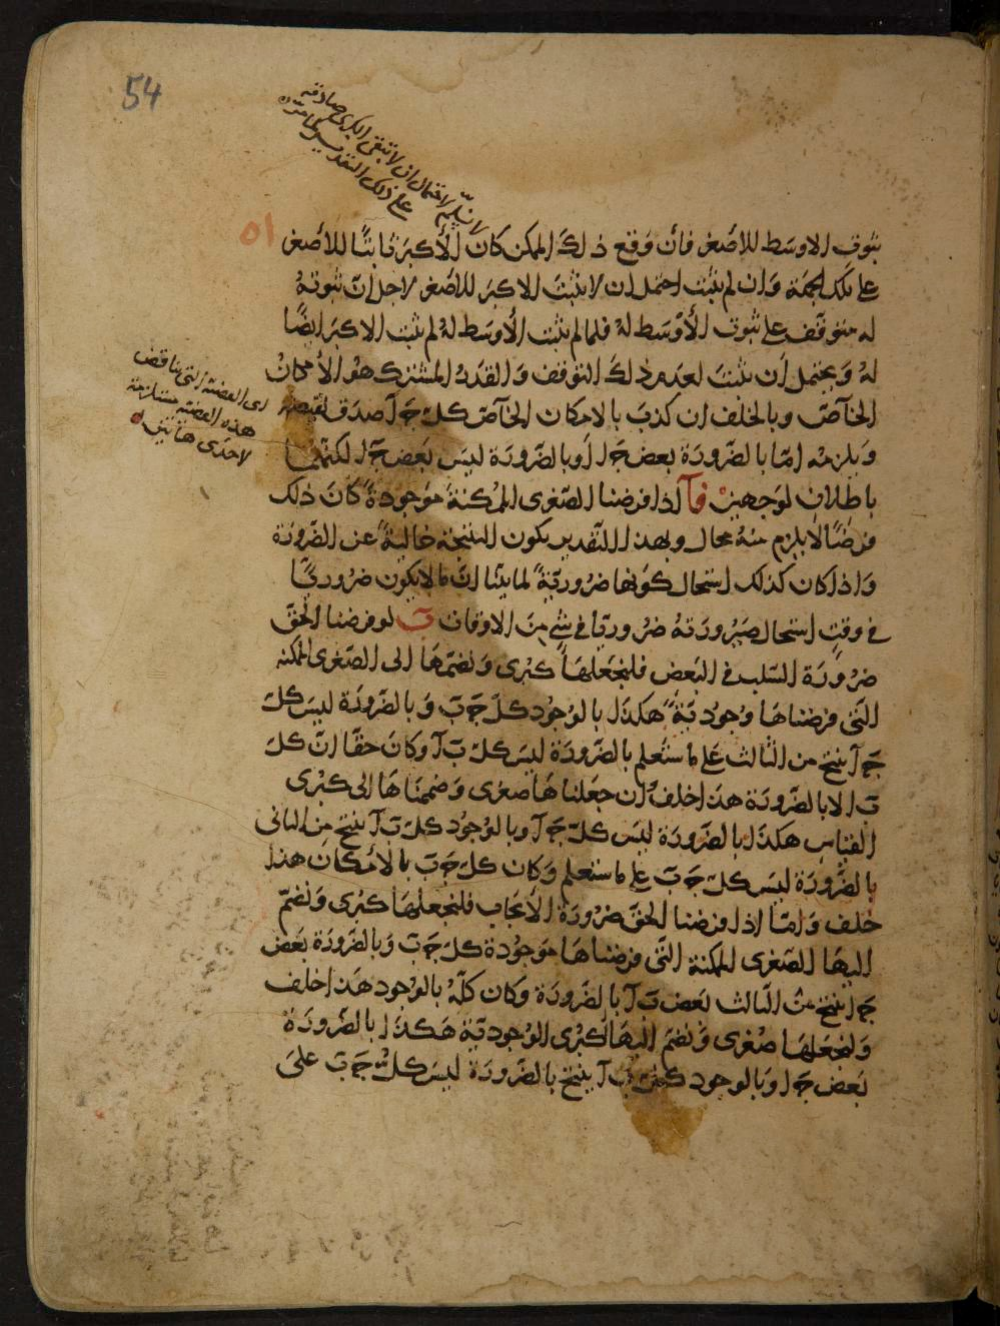 54
لا نسلم لاحتمال ان لا تبقى الكبرى صادقة
على ذلك التقدير
٥١
ثبوت الاوسط للاصغر فان وقع ذلك الممكن كان الأكبر ثابتًا للأصغر
على تلك الجهة وان لم يثبت احتمل ان لا يثبت الاكبر للاصغر لاجل انّ ثبوتهُ
له متوقّف على ثبوت الأوسط لهُ فلما لم يثبت الأوسط لهُ لم يثبت الاكبر ايضًا
لهُ ويحتمل ان يثبت لعدم ذلك التوقف والقدر المشترك هو الأمكانُ
الخاصّ وبالخلف ان كذب بالامكان الخاصّ كلّ جَ اَ صدق نقيضه
اى القضية التى يناقض
هذه القضية مستلزمة
لاحدى هاتين
ويلزمه امّا بالضرورة بعض جَ ا اوبالضرورة ليس بعض جَ ا لكنّهما
باطلان لوجهين فآ اذا فرضنا الصّغرى الممكنة موجودةً كان ذلك
فرضًا لا يلزم منهُ محال وبهذا التقدير يكون النتيجة خاليةً عن الضرورة
واذا كان كذلك استحال كونها ضروريّةً لما بيّنّا انّ ما لا يكون ضروريًّا
فى وقتٍ استحال صيرورتهُ ضروريّا فى شئٍ من الاوقات بَ لو فرضنا الحقّ
ضرورة السّلب فى البعض فلنجعلها كبرى ونضمّها الى الصّغرى الممكنه
التّى فرضناها وجوديّةً هكذا بالوجود كلّ جَ بَ وبالضرورة ليس كلّ
جَ اَ ينتج من الثالث على ما ستعلم بالضرورة ليس كلّ بَ اَ وكان حقّا انّ كلّ
بَ ا لا بالضرورة هذا خلفٌ ان جعلناها صغرى وضممناها الى كبرى
القياس هكذا بالضرورة ليس كلّ جَ اَ وبالوجود كلّ بَ اَ ينتج من الثانى
بالضرورة ليس كلّ جَ بَ على ما ستعلم وكان كلّ جَ بَ بالأمكان هذا
خلف وامّا اذا فرضنا الحقّ ضرورة الأيجاب فلنجعلها كبرى ونضمّ
اليها الصّغرى الممكنة التّى فرضناها موجودة كلّ جَ بَ وبالضرورة بعض
جَ ا ينتج من الثالث بعض بَ اَ بالضرورة وكان كلّهُ بالوجود هذا خلف
ولنجعلها صُغرى ونضمّ اليها كبرى الوجوديّة هكذا بالضرورة
بعض جَ ا وبالوجود كلّ بَ اَ ينتج بالضرورة ليس كلّ جَ بَ على